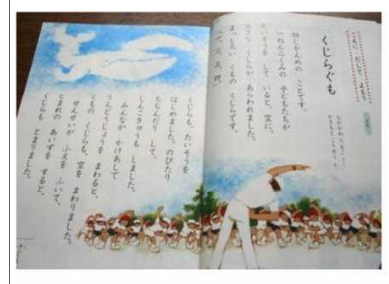 こえに だして よもう
くじらぐも
なかがわ りえこ さく
四じかんめの ことです。
一ねん二くみの 子どもたちが
たいそうを して いると、空に、
大きな くじらが あらわれました。
まっしろい くもの くじらです。
「一、二、三、四。」
くじらも、たいそうを
はじめました。のびたり
ちぢんだり して、
しんこきゅうも しました。
みんなが かけあしで
うんどうじょうを まわると、
くもの くじらも、空を まわりました。
せんせいが ふえを ふいて、
とまれの あいずを すると、
くじらも とまりました。